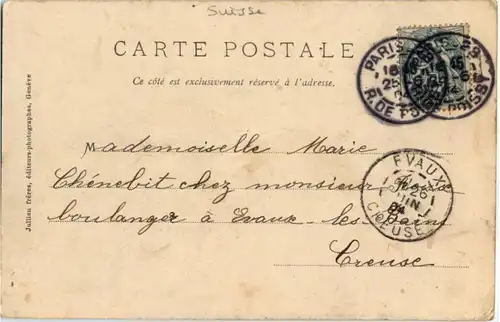 Suisse
CARTE POSTALE
Ce côté est exclusivement réservé à l'adresse.
PARIS
R. DE POISSY
Mademoiselle Marie
Chénebit chez monsieur
boulanger à Evaux-les-Bains
Creuse
EVAUX
26
JUIN
04
CREUSE
Jullien frères, éditeurs-photographes, Genève